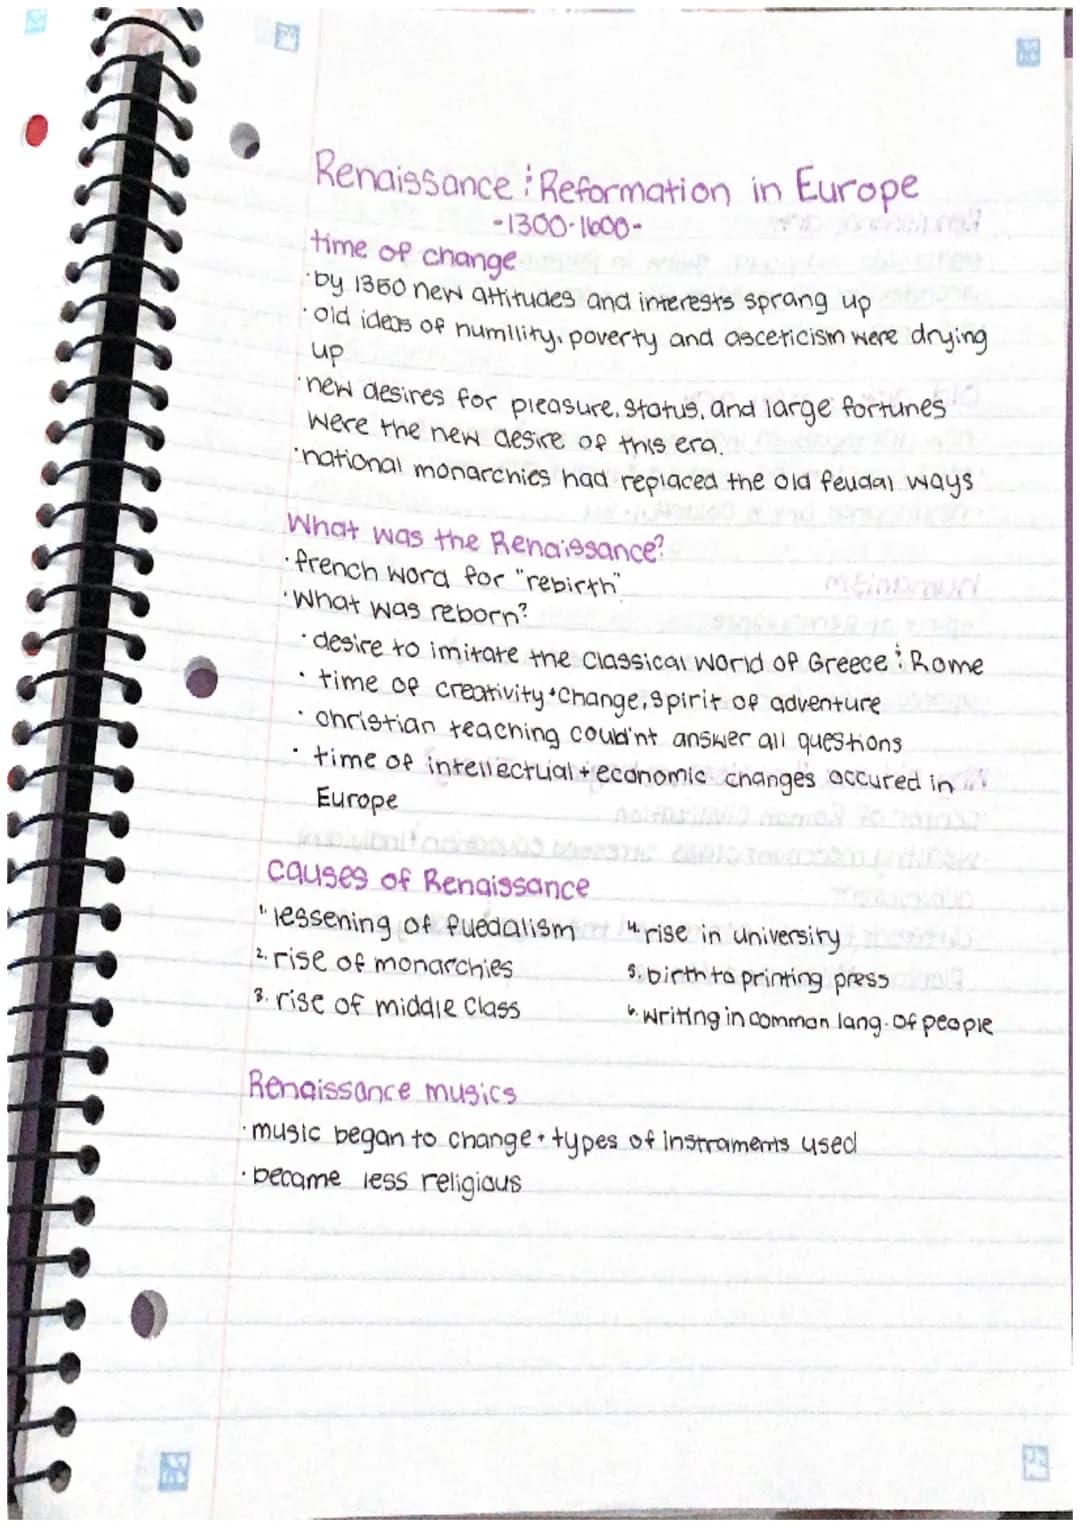 Renaissance & Reformation in Europe
-1300-1600-
time of change
·by 1350 new attitudes and interests sprang up
·old ideas of humility, poverty and asceticism were drying
up
·new desires for pleasure, status, and large fortunes
were the new desire of this era.
·national monarchies had replaced the old feudal ways
What was the Renaissance?
·french word for "rebirth"
·What was reborn?
·desire to imitate the Classical world of Greece & Rome
·time of creativity + change; spirit of adventure
·christian teaching could'nt answer all questions
·time of intellectual + economic changes occured in
Europe
causes of Renaissance
1. lessening of fuedalism
2. rise of monarchies
3. rise of middle class
4. rise in university
5. birth to printing press
6. writing in common lang. of people
Renaissance musics
·music began to change + types of instraments used
·became less religious